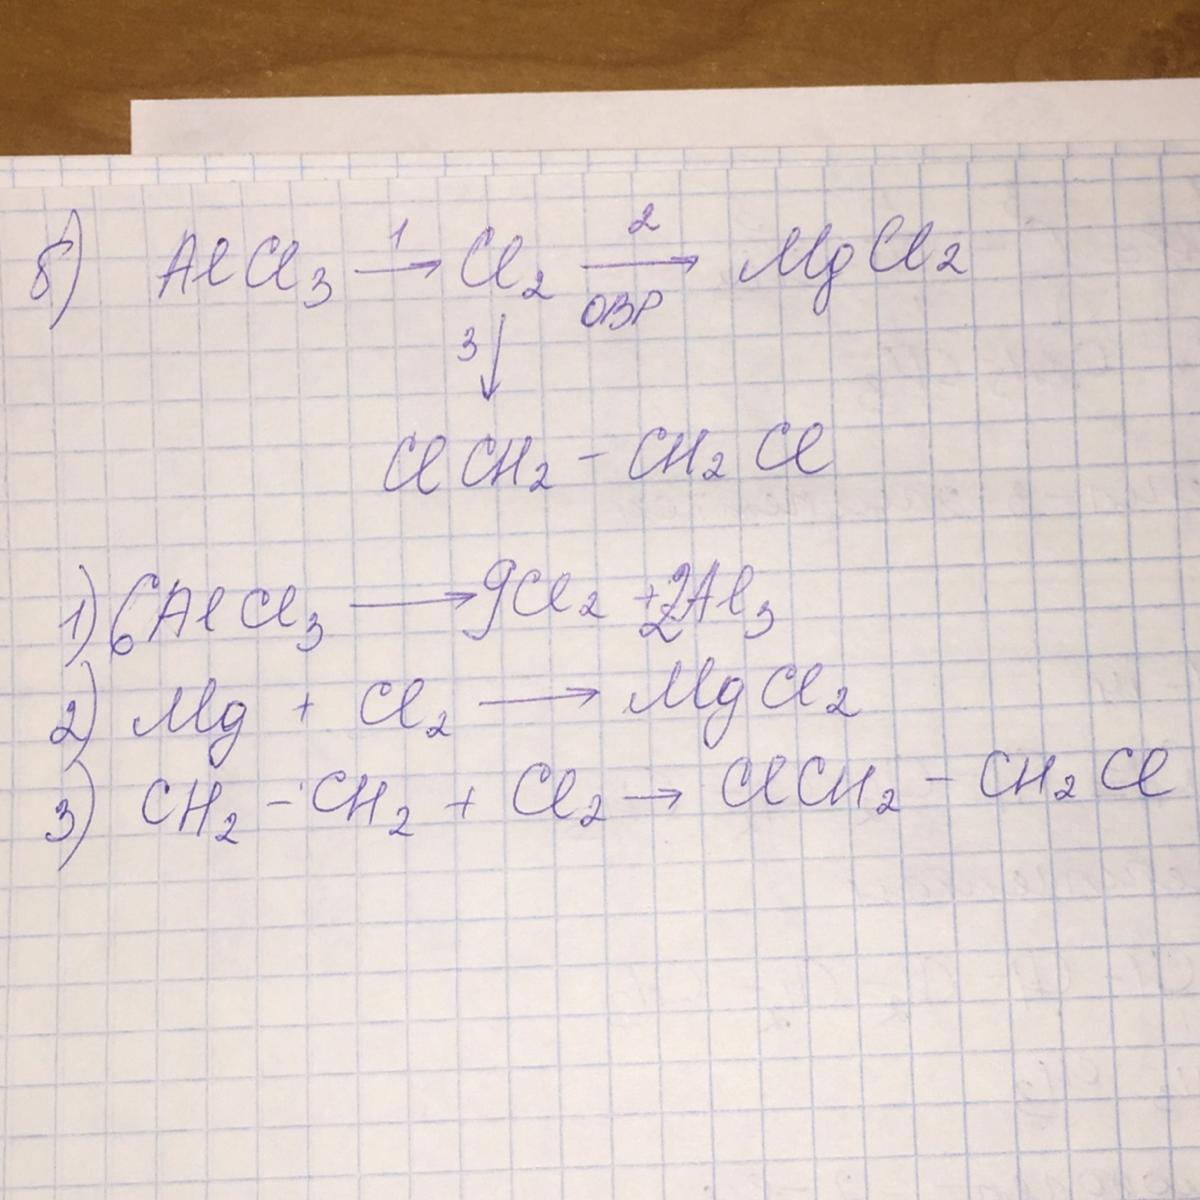 б) AlCl₃ —1→ Cl₂ —2→ MgCl₂
ОВР
3↓
ClCH₂ - CH₂Cl
1) 6AlCl₃ → 9Cl₂ + 2Al₃
2) Mg + Cl₂ → MgCl₂
3) CH₂ - CH₂ + Cl₂ → ClCH₂ - CH₂Cl